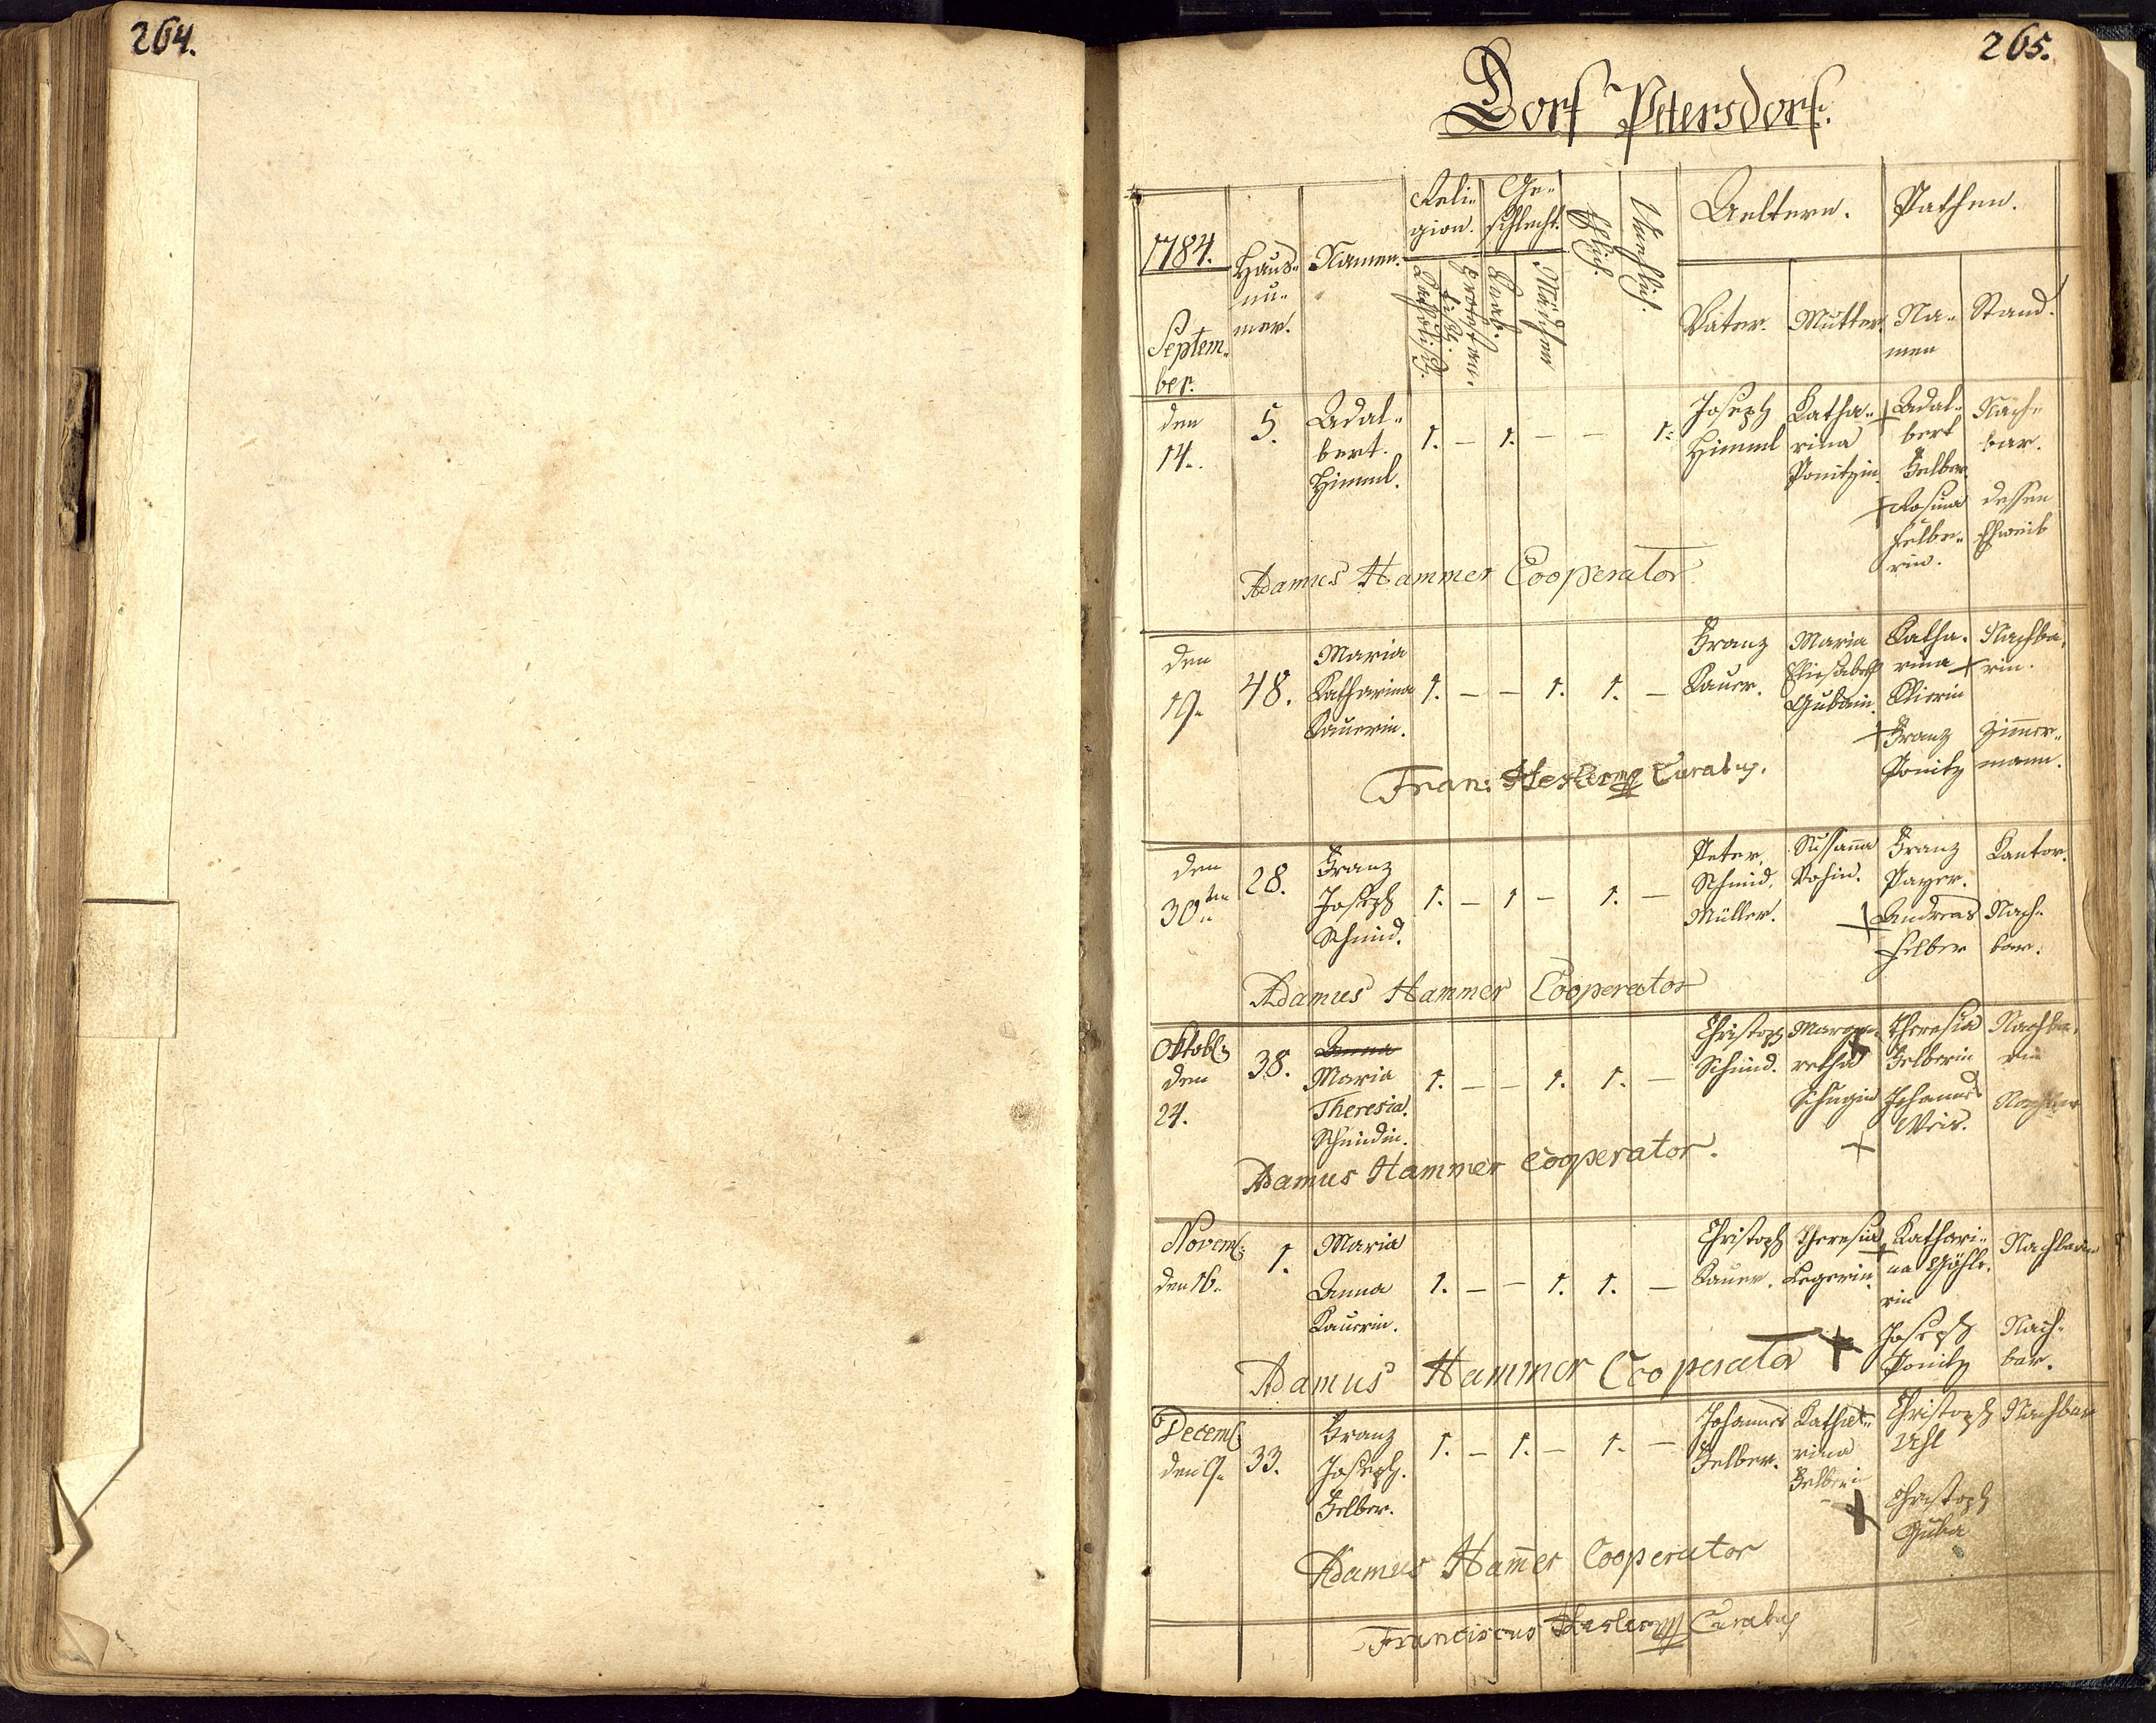 264.
265.
Dorf Petersdorf.
1784.
Septem-
ber.
Haus-
nu-
mer.
Namen.
Reli-
gion.
Katholisch.
Protestan-
tisch.
Ge-
schlecht.
Knab.
Mädchen
Ehlich.
Unehlich.
Aeltern.
Vater.
Mutter.
Pathen.
Na-
men
Stand.
den
14.
5.
Adal-
bert.
Himml.
1. – 1. – – 1.
Joseph
Himml
Katha-
rina
Ponitzin.
Adal-
bert
Felber.
Nach-
bar.
Rosina
Felbe-
rin.
dessen
Eheweib
Adamus Hammer Cooperator
den
19.
48.
Maria
Katharina
Bauerin.
1. – – 1. 1. –
Franz
Bauer.
Maria
Elisabeth
Gubain.
Katha-
rina
Nachba-
rin.
Franz
Ponitz
Zimer-
mann.
Fran: Curatus.
den
30ten
28.
Franz
Joseph
Schmid.
1. – 1 – 1. –
Peter
Schmid,
Müller.
Susanna
Franz
Payer.
Kantor.
Andreas
Felber
Nach-
bar.
Adamus Hammer Cooperator
Oktob:
den
24.
38.
Anna
Maria
Theresia.
Schmidin.
1. – – 1. 1. –
Christoph
Schmid.
Marga-
retha
Theresia
Felberin
Nachba-
rin
Johannes
Weis.
Nachbar
Adamus Hammer Cooperator.
Novemb:
den 16.
1.
Maria
Anna
Bauerin.
1. – – 1. 1. –
Christoph
Bauer.
Theresia
Legerin.
Kathari-
na
rin
Nachbarin
Joseph
Ponitz
Nach-
bar.
Adamus Hammer Cooperator
Decemb:
den 9.
33.
Franz
Joseph.
Felber.
1. – 1. – 1. –
Johannes
Felber.
Katha-
rina
Felberin
Christoph
Uhl
Nachbar
Christoph
Guba
Adamus Ham̅er Cooperator
Franciscus Curatus